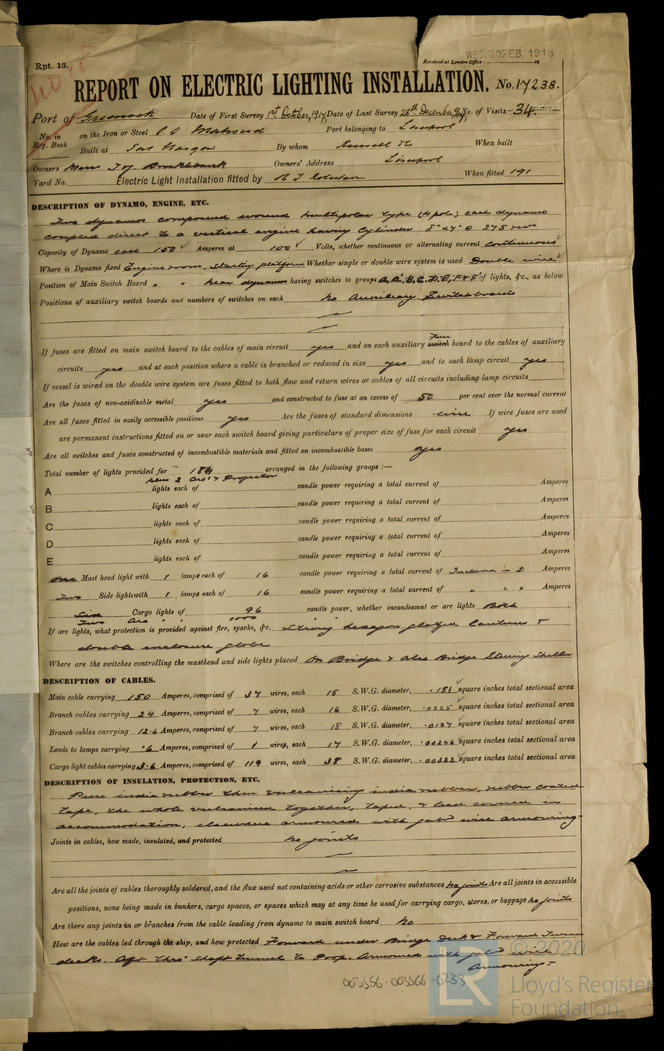 Rpt. 13.
WED. 20 FEB. 1918
Received at London Office
REPORT ON ELECTRIC LIGHTING INSTALLATION. No. 17238.
Port of Greenock Date of First Survey 1st October, 1917 Date of Last Survey 28th December No. of Visits 34
No. in Reg. Book on the Iron or Steel S.S. Mahsud Port belonging to Liverpool
Built at Port Glasgow By whom When built
Owners Mess T. & J. Brocklebank Owners' Address Liverpool
Yard No. Electric Light Installation fitted by When fitted 191
DESCRIPTION OF DYNAMO, ENGINE, ETC.
Two dynamos compound wound multipolar type (4 pole) each dynamo
coupled direct to a vertical engine having cylinder 8" × 7" @ 275 rev
Capacity of Dynamo each 150 Amperes at 100 Volts, whether continuous or alternating current continuous
Where is Dynamo fixed Engine room, starting platform Whether single or double wire system is used Double wire
Position of Main Switch Board " " near dynamos having switches to groups A, B, C, D, E, F & G of lights, &c., as below
Positions of auxiliary switch boards and numbers of switches on each No Auxiliary Switchboards
If fuses are fitted on main switch board to the cables of main circuit yes and on each auxiliary fuse switch board to the cables of auxiliary
circuits yes and at each position where a cable is branched or reduced in size yes and to each lamp circuit yes
If vessel is wired on the double wire system are fuses fitted to both flow and return wires or cables of all circuits including lamp circuits
Are the fuses of non-oxidizable metal yes and constructed to fuse at an excess of 50 per cent over the normal current
Are all fuses fitted in easily accessible positions yes Are the fuses of standard dimensions wire If wire fuses are used
are permanent instructions fitted on or near each switch board giving particulars of proper size of fuse for each circuit yes
Are all switches and fuses constructed of incombustible materials and fitted on incombustible bases yes
Total number of lights provided for arranged in the following groups :—
plus 2 Arcs & Projector
A lights each of candle power requiring a total current of Amperes
B lights each of candle power requiring a total current of Amperes
C lights each of candle power requiring a total current of Amperes
D lights each of candle power requiring a total current of Amperes
E lights each of candle power requiring a total current of Amperes
one Mast head light with 1 lamps each of 16 candle power requiring a total current of Included in Amperes
Two Side lights with 1 lamps each of 16 candle power requiring a total current of " " " Amperes
Six Cargo lights of 96 candle power, whether incandescent or arc lights Both
Two Arc " 1000
If arc lights, what protection is provided against fire, sparks, &c. Strong hexagon glazed lanterns &
double enclosure globe
Where are the switches controlling the masthead and side lights placed On Bridge & Also Bridge Steering Shelter
DESCRIPTION OF CABLES.
Main cable carrying 150 Amperes, comprised of 37 wires, each 15 S.W.G. diameter, .151 square inches total sectional area
Branch cables carrying 24 Amperes, comprised of 7 wires, each 16 S.W.G. diameter, .0225 square inches total sectional area
Branch cables carrying 12.6 Amperes, comprised of 7 wires, each 18 S.W.G. diameter, .0127 square inches total sectional area
Leads to lamps carrying .6 Amperes, comprised of 1 wires, each 17 S.W.G. diameter, .00246 square inches total sectional area
Cargo light cables carrying 3.6 Amperes, comprised of 119 wires, each 38 S.W.G. diameter, .00322 square inches total sectional area
DESCRIPTION OF INSULATION, PROTECTION, ETC.
Pure india rubber then vulcanising india rubber, rubber coated
tape, the whole vulcanised together, taped, & lead covered in
accommodation, elsewhere armoured with galvd wire armouring
Joints in cables, how made, insulated, and protected no joints
Are all the joints of cables thoroughly soldered, and the flux used not containing acids or other corrosive substances no joints Are all joints in accessible
positions, none being made in bunkers, cargo spaces, or spaces which may at any time be used for carrying cargo, stores, or baggage no joints
Are there any joints in or branches from the cable leading from dynamo to main switch board No
How are the cables led through the ship, and how protected Forward under Bridge Deck & Forward Tween
decks. Aft thro' shaft tunnel to Poop. Armoured with galvd wire
Armouring
003556-003566-0233
© 2020
LR Lloyd's Register
Foundation